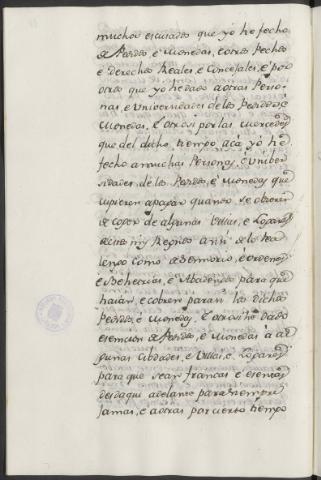 muchos escusados que yo he fecho
de Pedidos, é Monedas, é otros Pechos
é derechos Reales, é Concejales, é por
otros que yo hé dado a otras Perso-
nas, é Universidades de los Pedidos, é
Monedas, é otrosi por las mercedes
que del dicho tiempo acá yo hé
fecho a muchas Personas, é Univer
sidades, de los Pedidos, é Monedas que
copieren a pagar quando se obieren
de coger de algunas Villas, é Logares
de los mis Regnos ansi de lo Rea
lengo como Abadengo, é ordenes,
é Behetrias, é Abadengos para que
haian, é cobren para si los dichos
Pedidos, é Monedas é otrosi hé dado
esencion de Pedidos, é Monedas á al
gunas Cibdades, é Villas, é Logares
para que sean francas é esentas
desde aqui adelante para siempre
jamas, é a otras por cierto tiempo